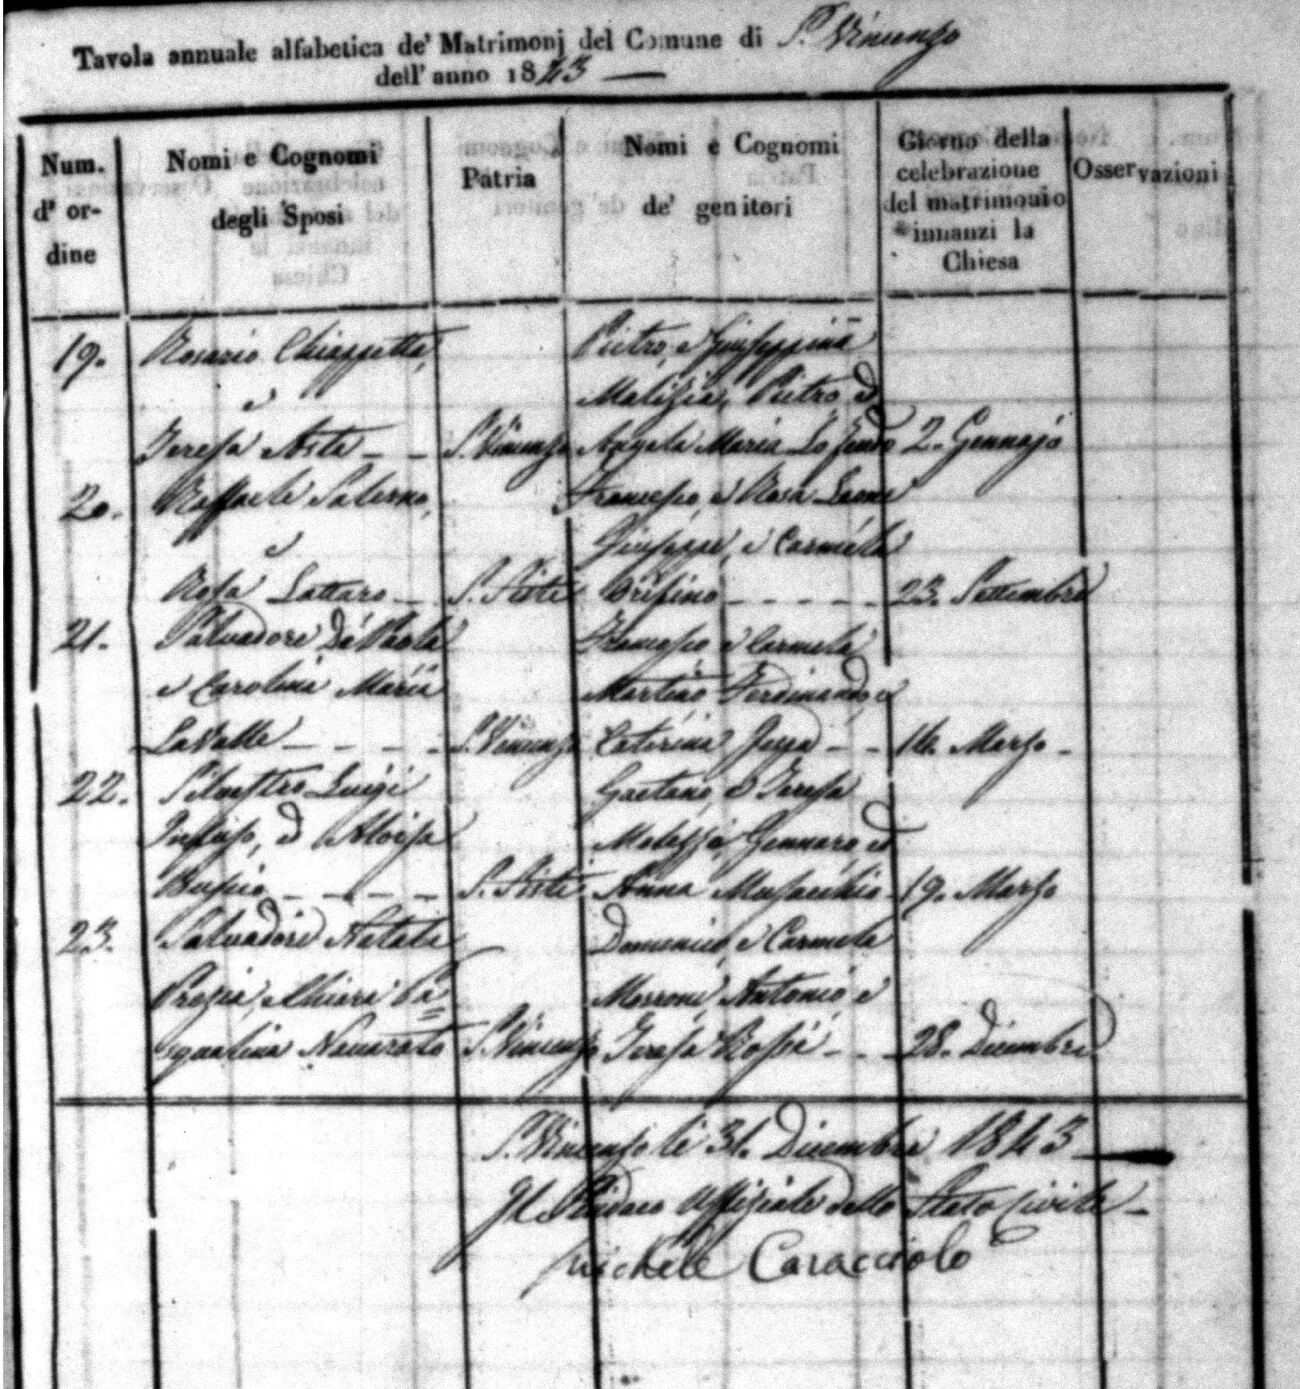 Tavola annuale alfabetica de' Matrimonj del Comune di S. Vincenzo
dell' anno 1843 —
Num. d' ordine
Nomi e Cognomi degli Sposi
Patria
Nomi e Cognomi de' genitori
Giorno della celebrazione del matrimonio innanzi la Chiesa
Osservazioni
19. Rosario Chiappetta, Pietro, e Giuseppina
e Malizia, Pietro, ed
Teresa Aste - - S. Vincenzo Angela Maria Lo 2. Gennajo
20. Raffaele Salerno, Francesco, e Rosa Leone
e Giuseppe, e Carmela
Rosa Lattaro - S. Sisti Crispino - - - - - 23. Settembre
21. Salvadore De Paola Francesco e Carmela
e Carolina Maria Martino Ferdinando, e
LaValle - - - - S. Vincenzo Caterina - - 14. Marzo -
22. Silvestro Luigi Gaetano, e Teresa
Infuso, ed Aloisa Gennaro, ed
- - - - - S. Sisti Anna Musacchio - 19. Marzo
23. Salvadore Natale Domenico, e Carmela
Prezia, e Chiara Pa= Morrone, Antonio, e
squalina Navarato S. Vincenzo Teresa Rossi - - 28. Dicembre
S. Vincenzo li 31. Dicembre 1843 —
Il Sindaco Uffiziale dello Stato Civile -
Michele Caracciolo